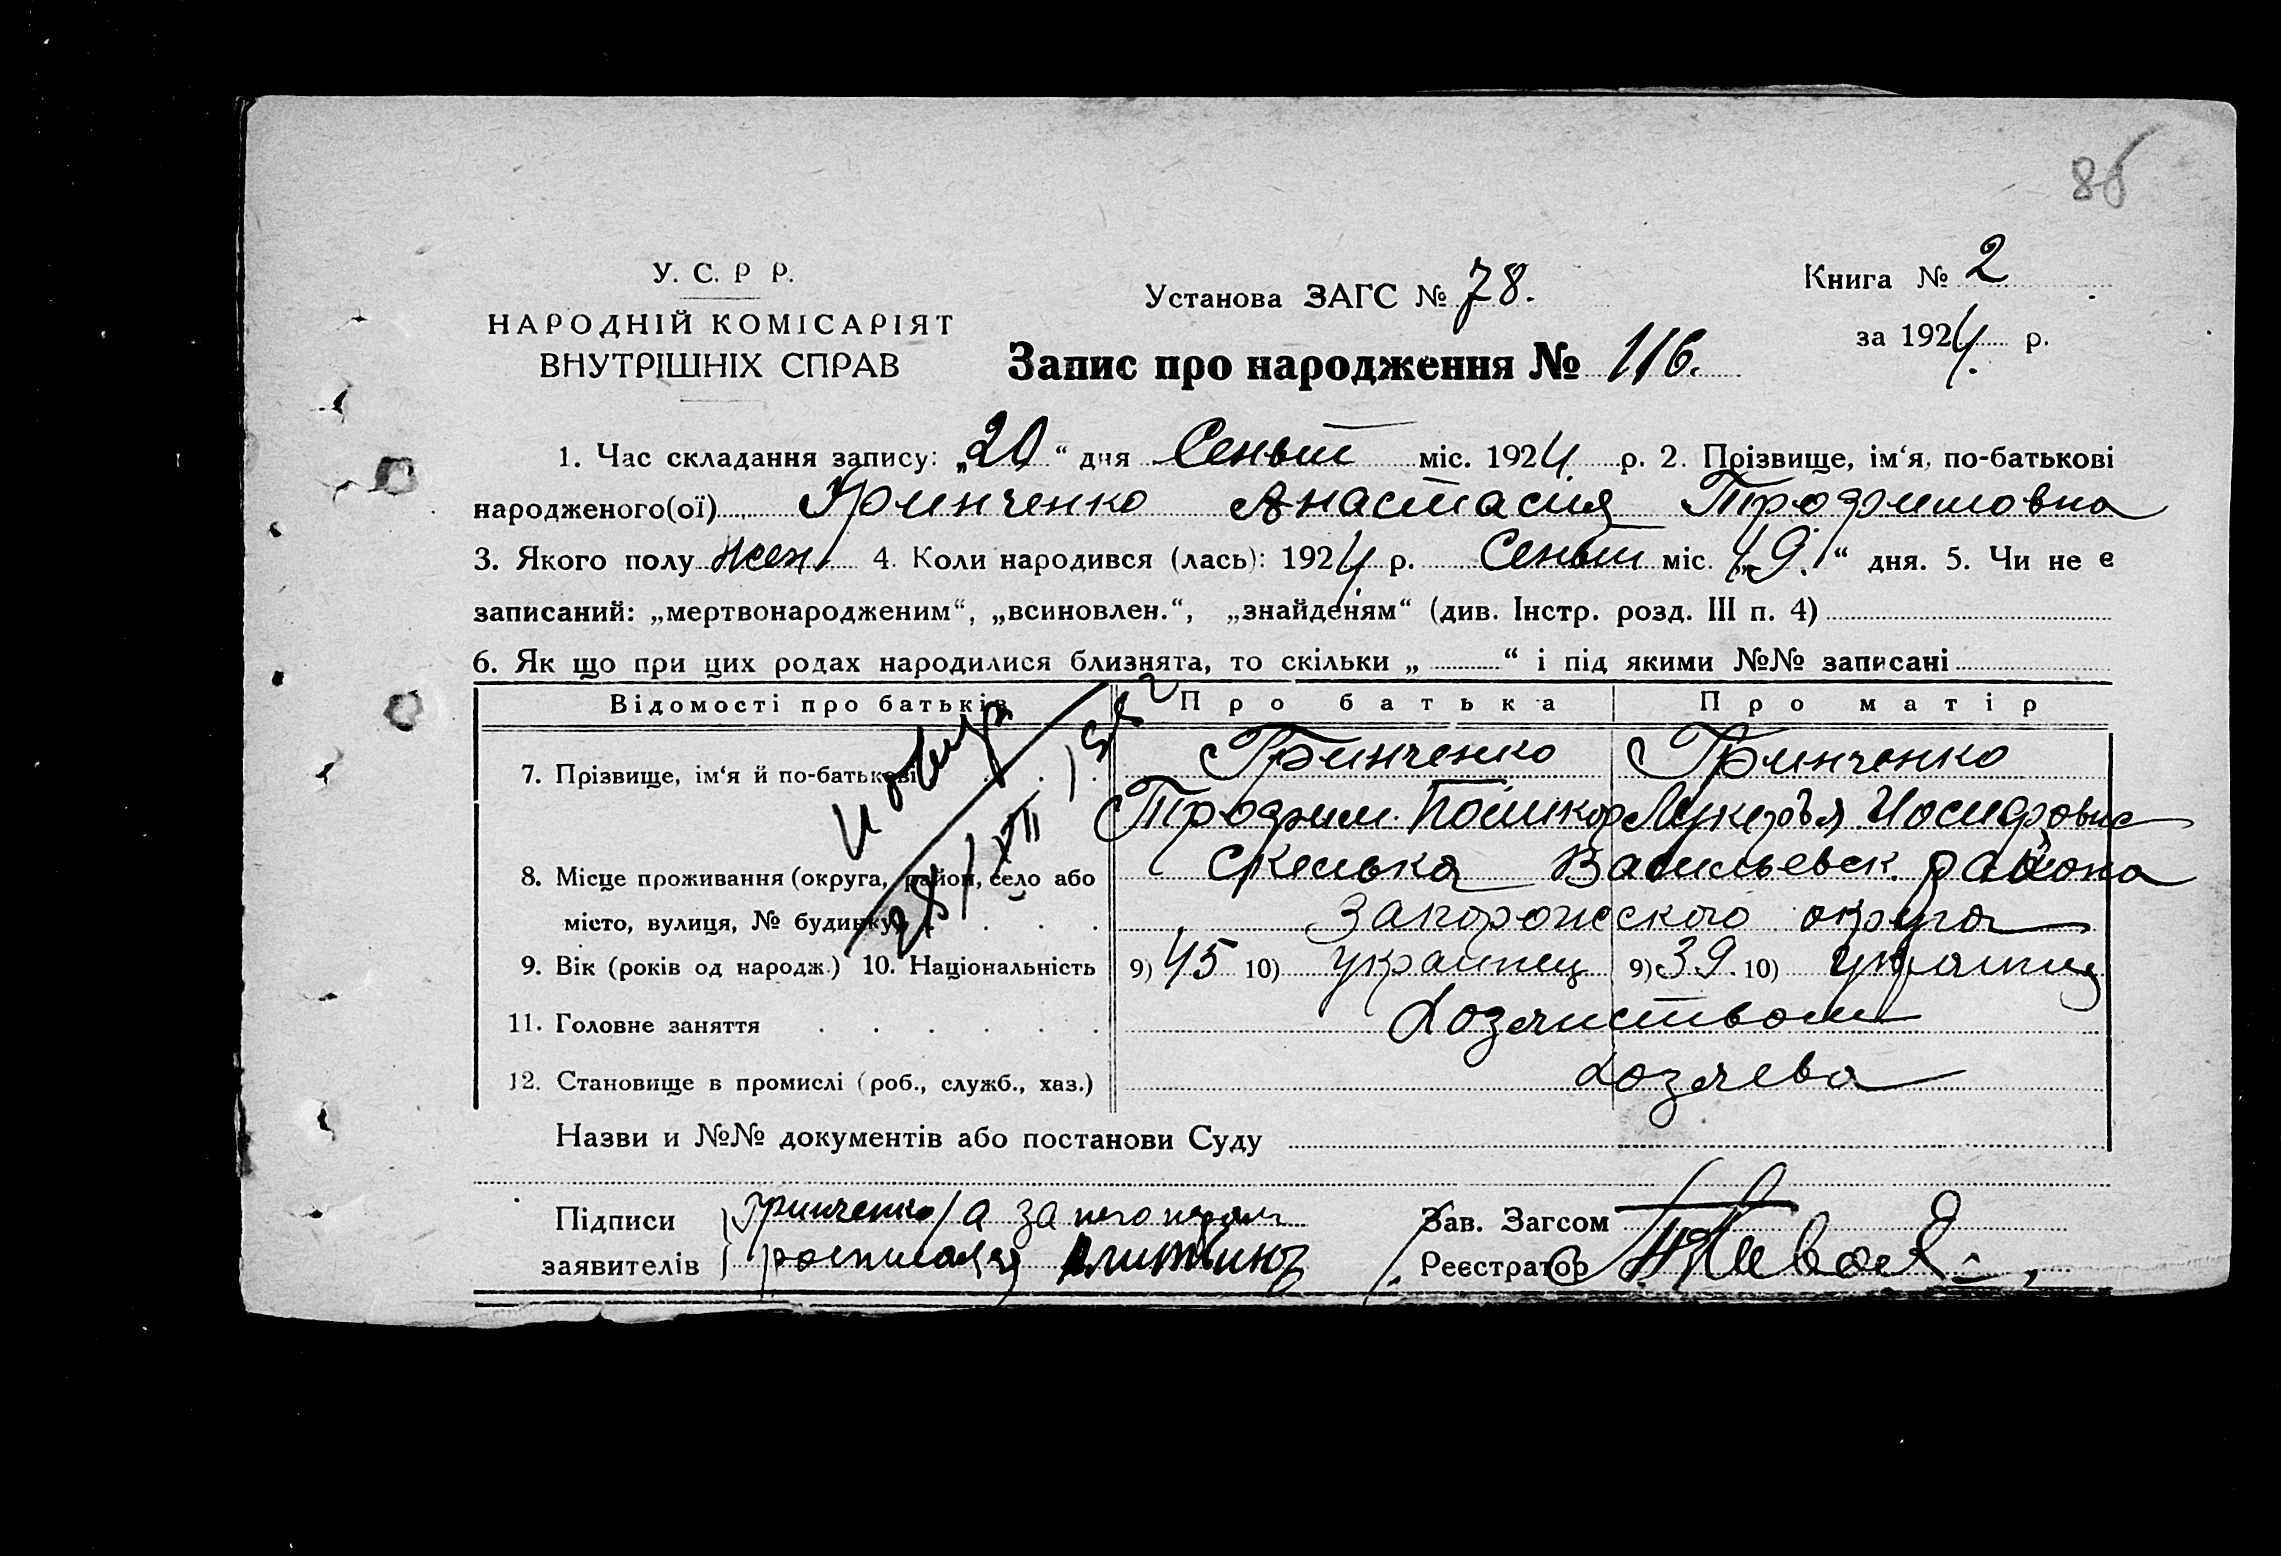 86
У. С. Р Р.
НАРОДНІЙ КОМІСАРІЯТ
ВНУТРІШНІХ СПРАВ
Установа ЗАГС № 78.
Книга № 2
за 1924 р.
Запис про народження № 116.
1. Час складання запису: „20“ дня Сеньт міс. 1924 р. 2. Прізвище, ім‘я, по-батькові
народженого(ої) Гринченко Анастасия Трофимовна
3. Якого полу жен 4. Коли народився (лась): 1924 р. Сеньт міс. „19“ дня. 5. Чи не є
записаний: „мертвонародженим“, „всиновлен.“, „знайденям“ (див. Інстр. розд. III п. 4)
6. Як що при цих родах народилися близнята, то скільки „ “ і під якими №№ записані
Відомості про батьків Про батька Про матір
7. Прізвище, ім‘я й по-батькові Гринченко Гринченко
Трофим Лукерья Иосифовна
8. Місце проживання (округа, район, село або Скелька Васильевск. района
місто, вулиця, № будинку) Запорожского округа
9. Вік (років од народж.) 10. Національність 9) 45 10) украинец 9) 39. 10)
11. Головне заняття Хозяиством
12. Становище в промислі (роб., служб., хаз.) хозяева
Назви и №№ документів або постанови Суду
Підписи Гринченко, а за него неграм
заявителів росписался
Зав. Загсом
Реєстратор